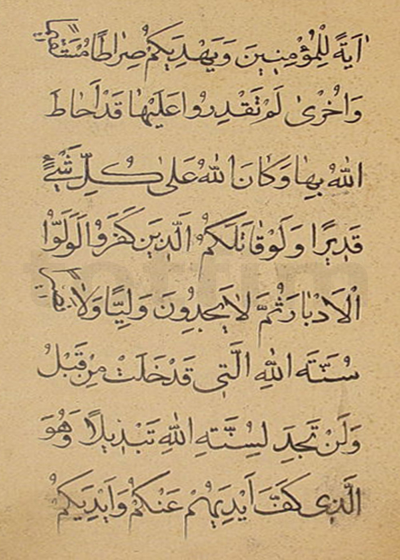 اٰيَةً لِلْمُؤْمِنِينَ وَيَهْدِيَكُمْ صِرَاطًا مُسْتَقِيمًا
وَاُخْرٰى لَمْ تَقْدِرُوا عَلَيْهَا قَدْ اَحَاطَ
اللهُ بِهَا وَكَانَ اللهُ عَلٰى كُلِّ شَيْءٍ
قَدِيرًا وَلَوْ قَاتَلَكُمُ الَّذِينَ كَفَرُوا لَوَلَّوُا
الْاَدْبَارَ ثُمَّ لَا يَجِدُونَ وَلِيًّا وَلَا نَصِيرًا
سُنَّةَ اللهِ الَّتِي قَدْ خَلَتْ مِنْ قَبْلُ
وَلَنْ تَجِدَ لِسُنَّةِ اللهِ تَبْدِيلًا وَهُوَ
الَّذِي كَفَّ اَيْدِيَهُمْ عَنْكُمْ وَاَيْدِيَكُمْ